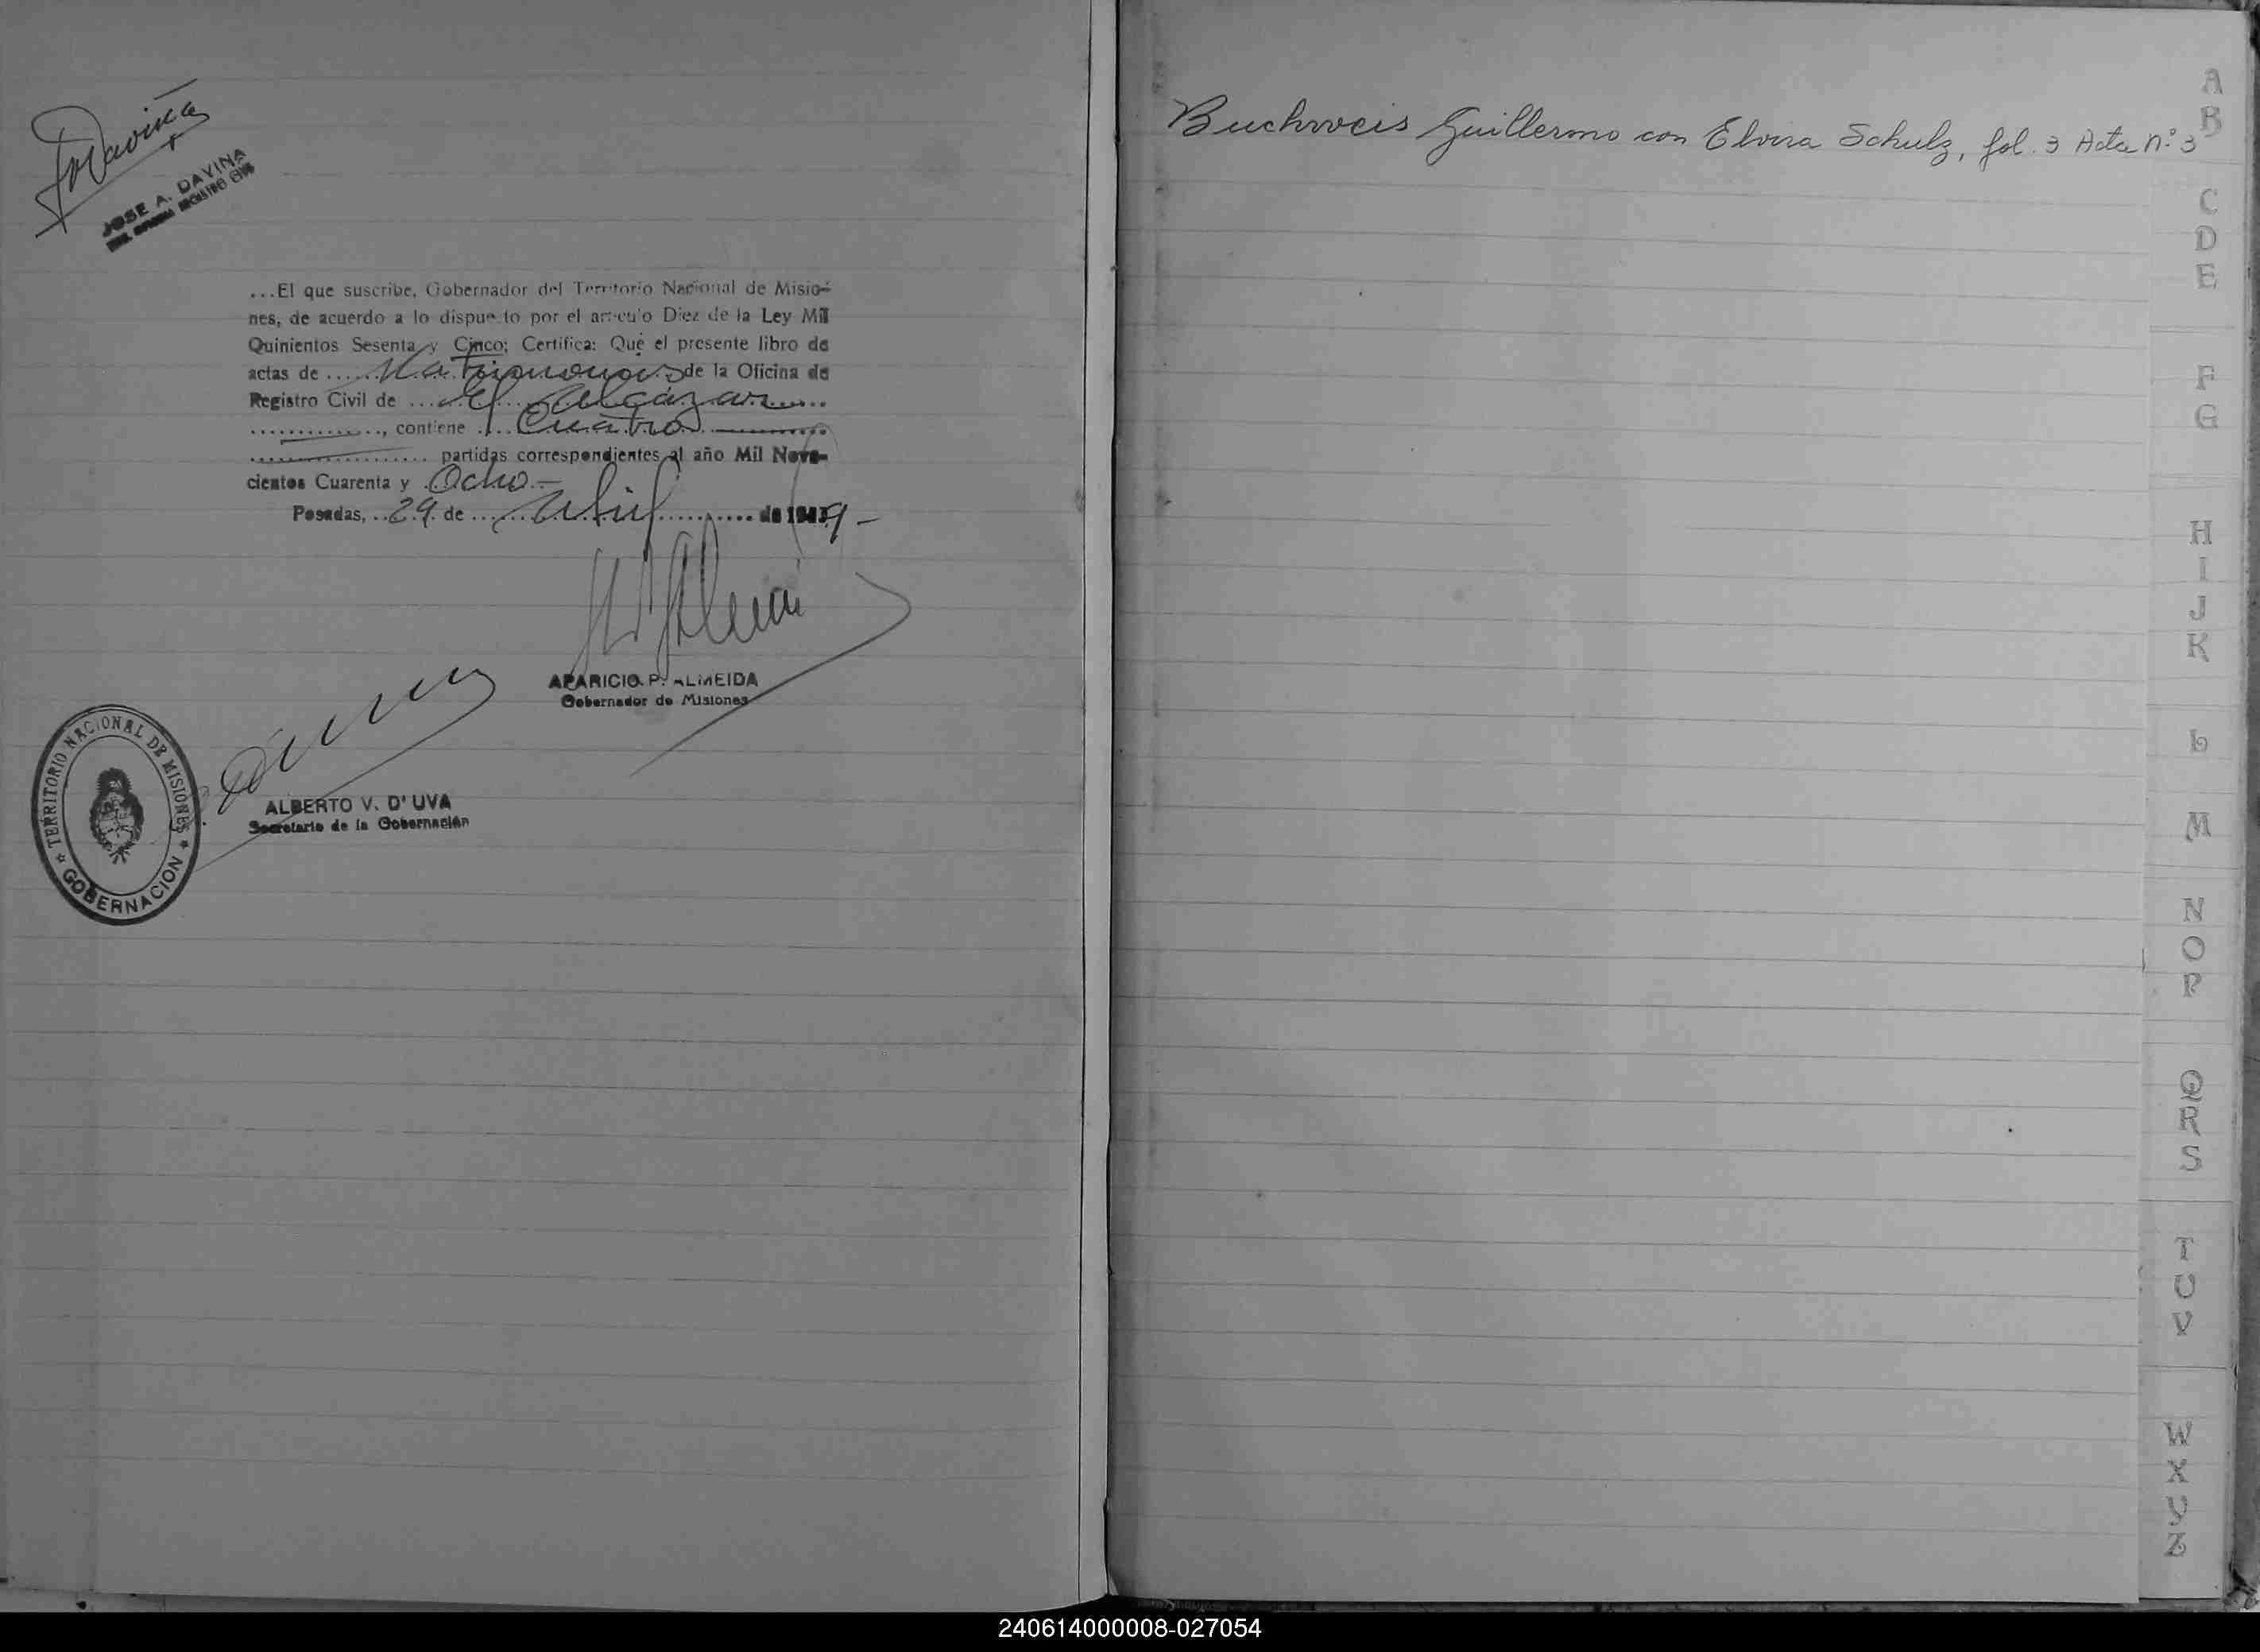 JOSE A. DAVIÑA
...El que suscribe, Gobernador del Territorio Nacional de Misio-
nes, de acuerdo a lo dispuesto por el artículo Diez de la Ley Mil
Quinientos Sesenta y Cinco; Certifica: Que el presente libro de
actas de ...... Matrimonios de la Oficina de
Registro Civil de .... El Alcázar ....
............., contiene ... Cuatro ......
................. partidas correspondientes al año Mil Nove-
cientos Cuarenta y Ocho.-
Posadas, ..29. de ... Abril ......... de 1949 -
APARICIO P. ALMEIDA
Gobernador de Misiones
ALBERTO V. D' UVA
Secretario de la Gobernación
TERRITORIO NACIONAL DE MISIONES
★ GOBERNACION ★
Buchrveis Guillermo con Elvira Schulz, fol. 3 Acta n° 3
A
B
C
D
E
F
G
H
I
J
K
L
M
N
O
P
Q
R
S
T
U
V
W
X
Y
Z
240614000008-027054